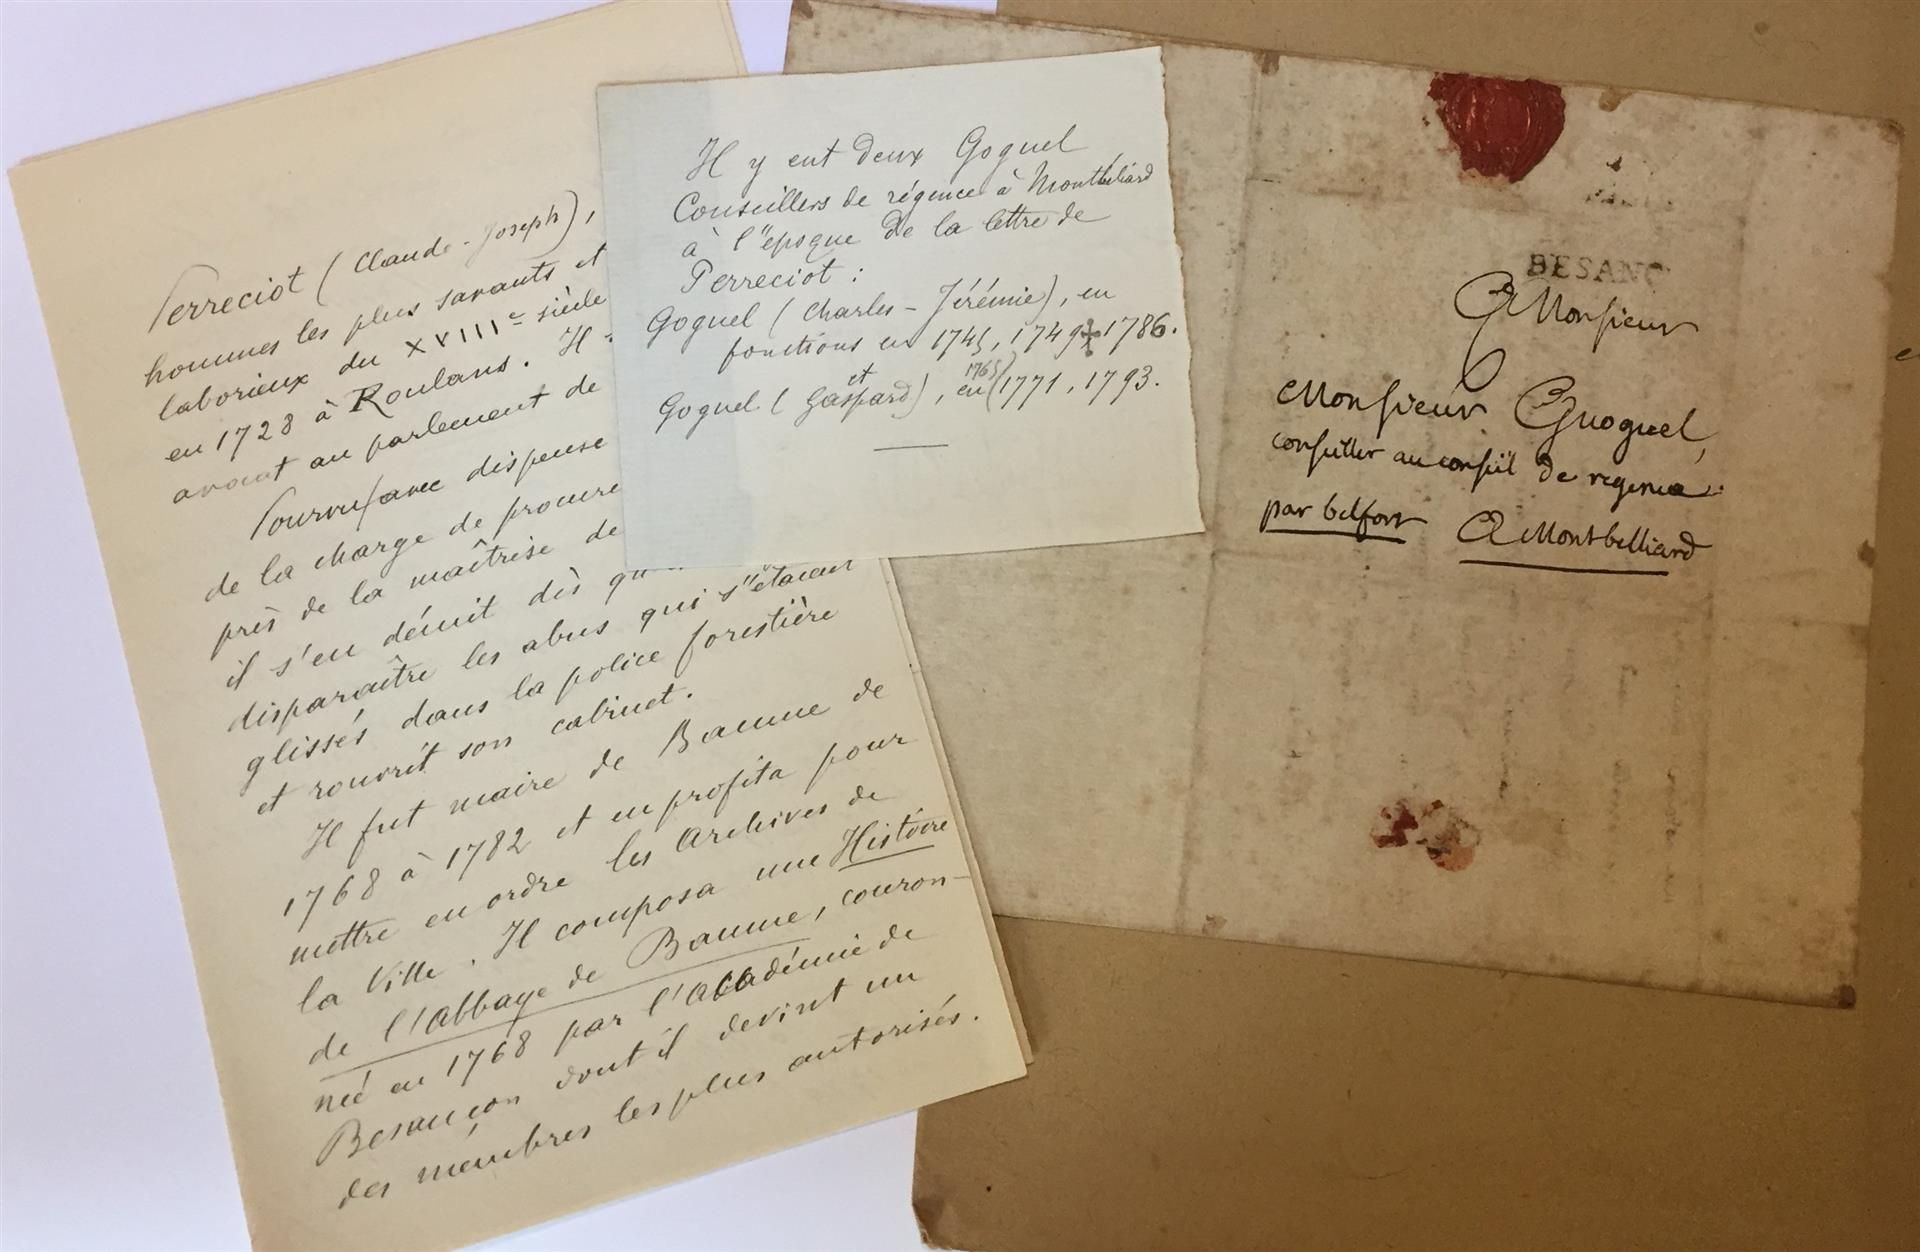 Perreciot (Claude-Joseph),
hommes les plus savants et
laborieux du XVIIIe siècle
en 1728 à Roulans. Il
avocat au parlement de
Pourvu avec dispense
de la charge de procure
près de la maîtrise de
il s'en démit dès qu
disparaître les abus qui s'étaient
glissés dans la police forestière
et rouvrit son cabinet.
Il fut maire de Baume de
1768 à 1782 et en profita pour
mettre en ordre les Archives de
la Ville. Il composa une Histoire
de l'Abbaye de Baume, couron-
née en 1768 par l'Académie de
Besançon dont il devint un
des membres les plus autorisés.
Il y eut deux Goguel
Conseillers de régence à Montbéliard
à l'époque de la lettre de
Perreciot :
Goguel (Charles-Jérémie), en
fonctions en 1745, 1749 + 1786.
et
Goguel (Gaspard), en (1765) 1771, 1793.
BESANÇ
A Monsieur
Monsieur Guoguel,
conseiller au conseil de regence
par belfort A Montbelliard